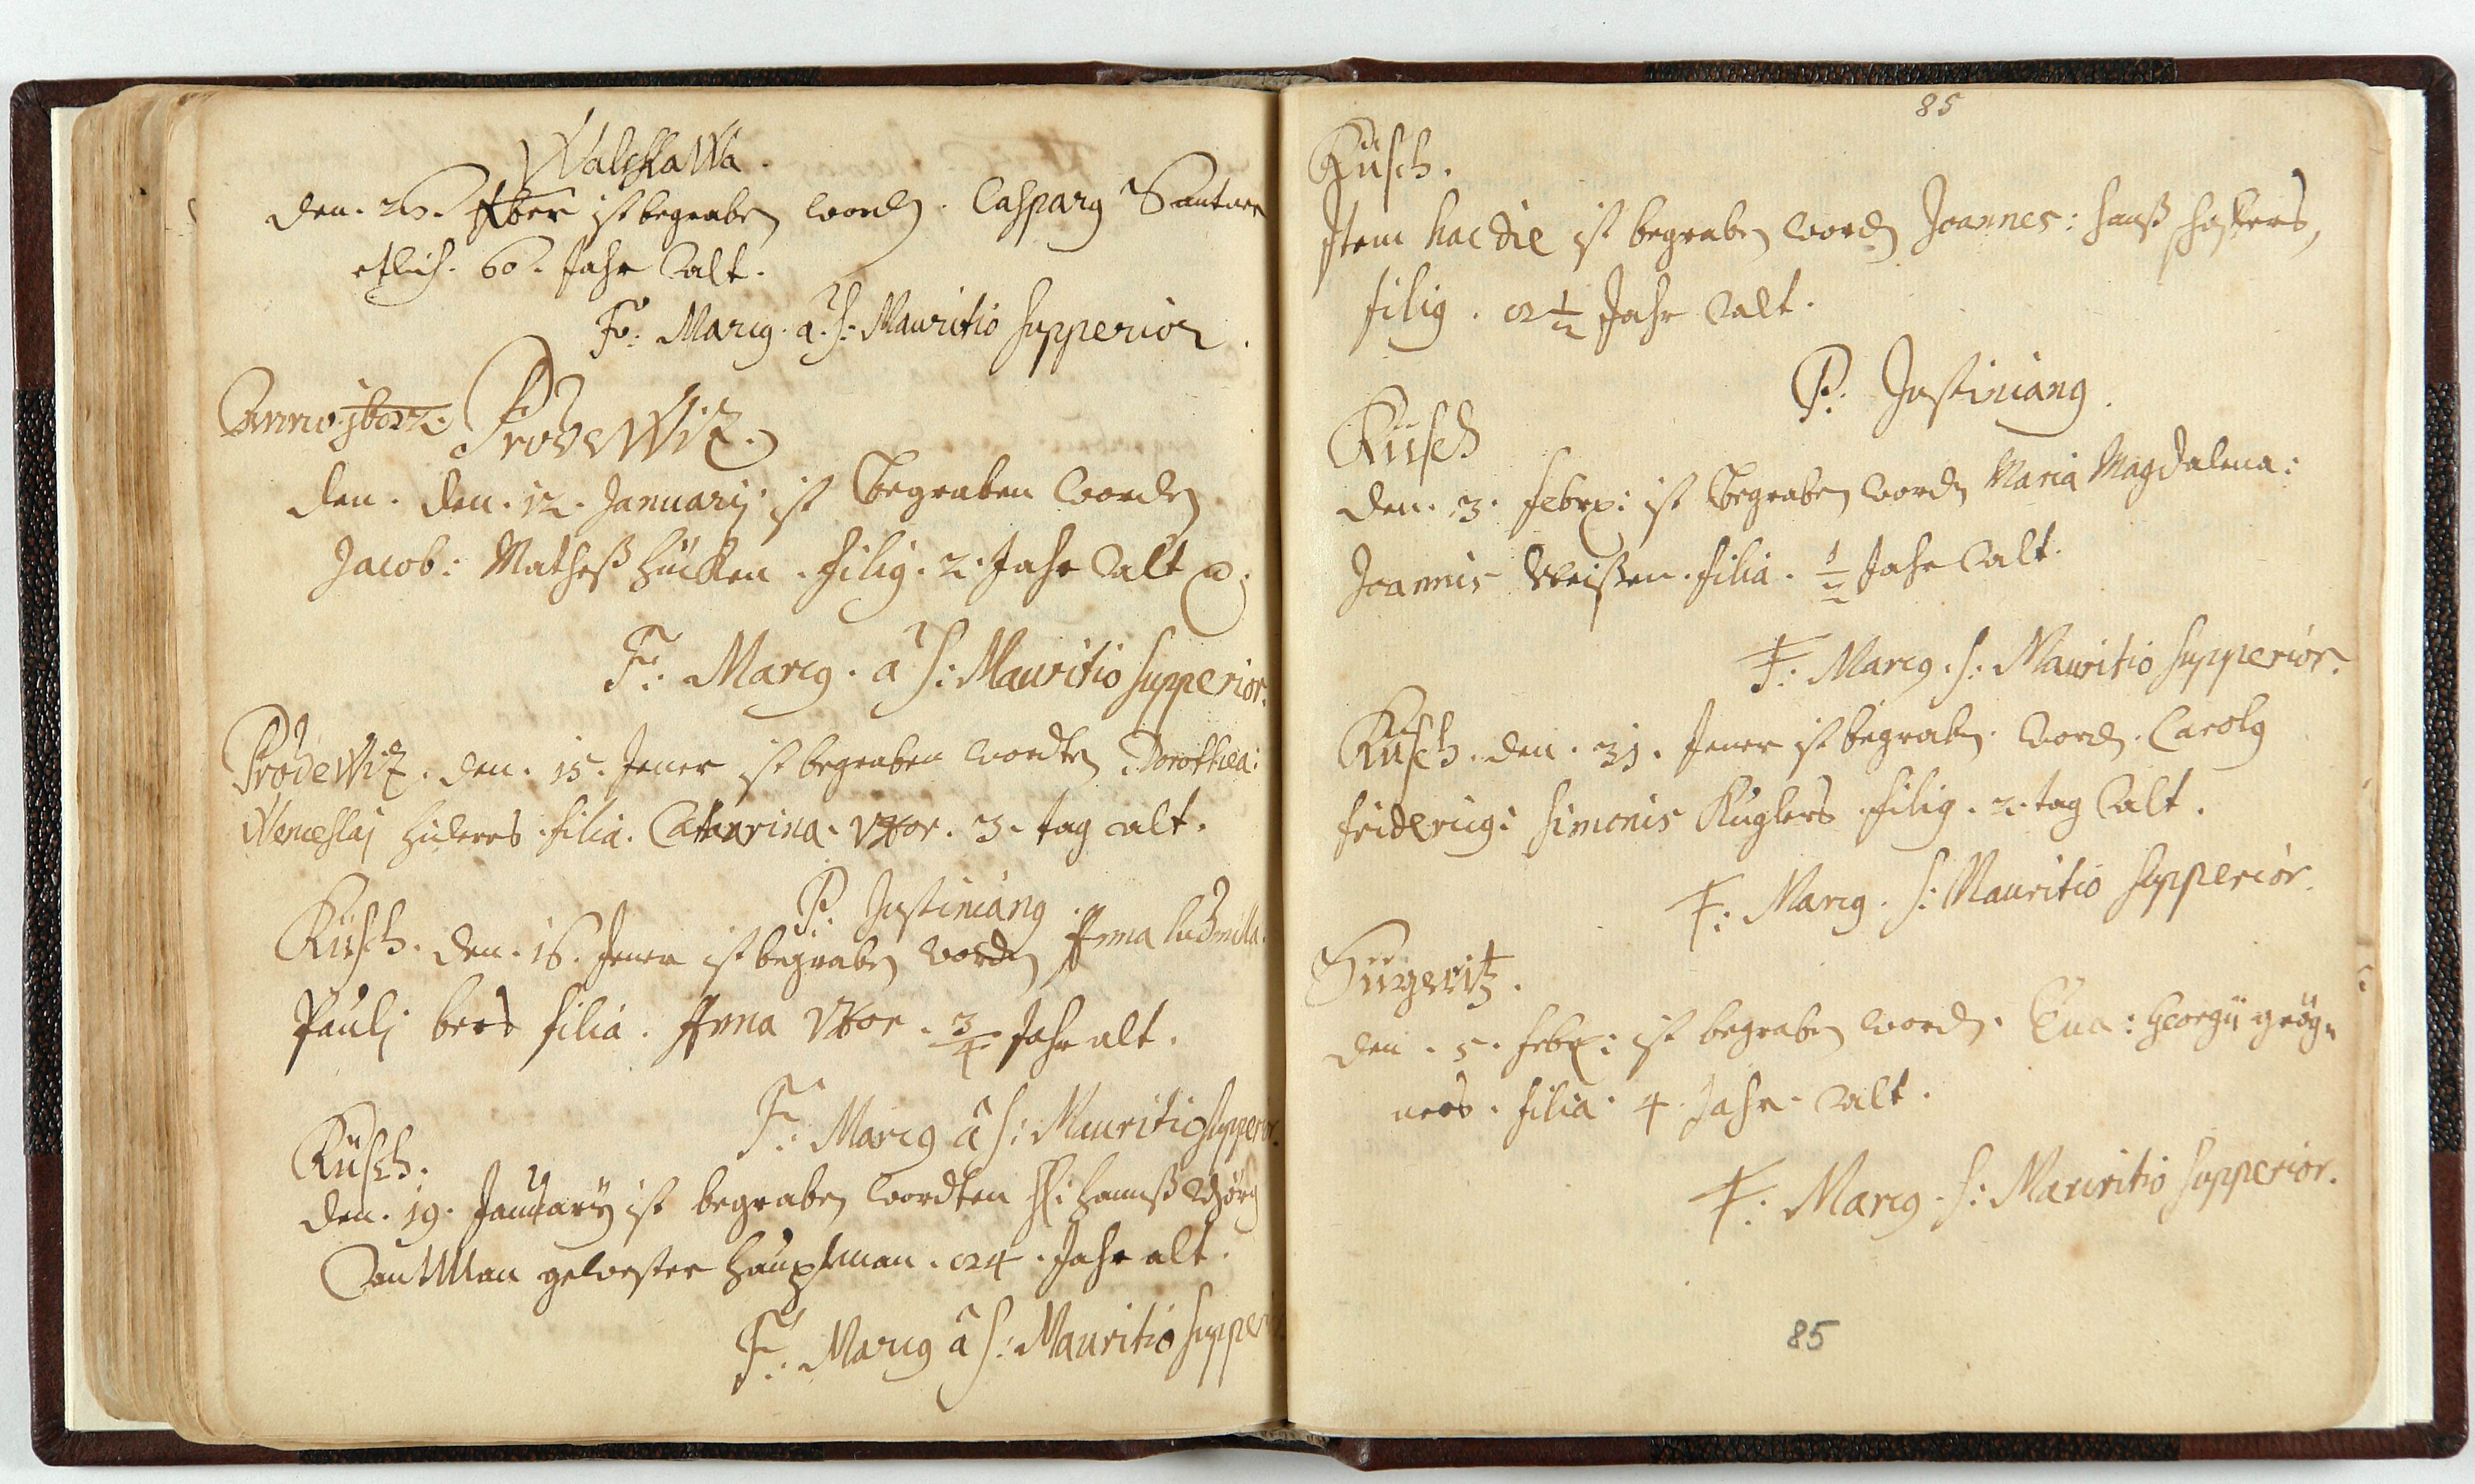 Walckawa.
den. 26. Xber ist begraben word. Casparg Santner
etlich. 60. Jahr alt.
Fr: Marcg. a S: Mauritio Supperior.
Anno.
Prodewitz.
den. den. 12. Januarij ist Begraben worden
Jacob: Matheß hücken. filig. 2. Jahr alt
F: Marcg. a S: Mauritio Supperior.
Prödewitz. den. 15. Jener ist begraben wordten Dorothea:
Wenceslaj hüleres filia. Catharina. vxor. 3. tag alt.
P. Justiniang.
Küsch. den. 16. Jener ist begraben worden Anna Ludmilla.
Paulj beer filia. Anna Vxor. 3/4 Jahr alt.
F: Marcg a S: Mauritio Supperior.
Küsch.
den. 19. January ist begraben wordten H: Hannß
gewester Hauptman. 84. Jahr alt.
F: Marcg a S: Mauritio Supper
85
Küsch.
Item hac die ist begraben word Joannes: Hanß
filig. 1/2 Jahr alt.
P: Justiniang.
Küsch
den. 3. Febr: ist Begraben word Maria Magdalena:
Joannis Weissen. filia. 1/2 Jahr alt.
F: Marcg. S: Mauritio Supperior.
Küsch. den. 31. Jener ist begraben word. Carolg
friderigg: Simonis Kuglers filig. 2. tag alt.
F: Marcg. S: Mauritio Supperior.
Sürgewitz.
den. 5. Febr: ist begraben word. Eua: Georgii grög=
ners. filia. 4. Jahr. alt.
F: Marcg. S: Mauritio Supperior.
85